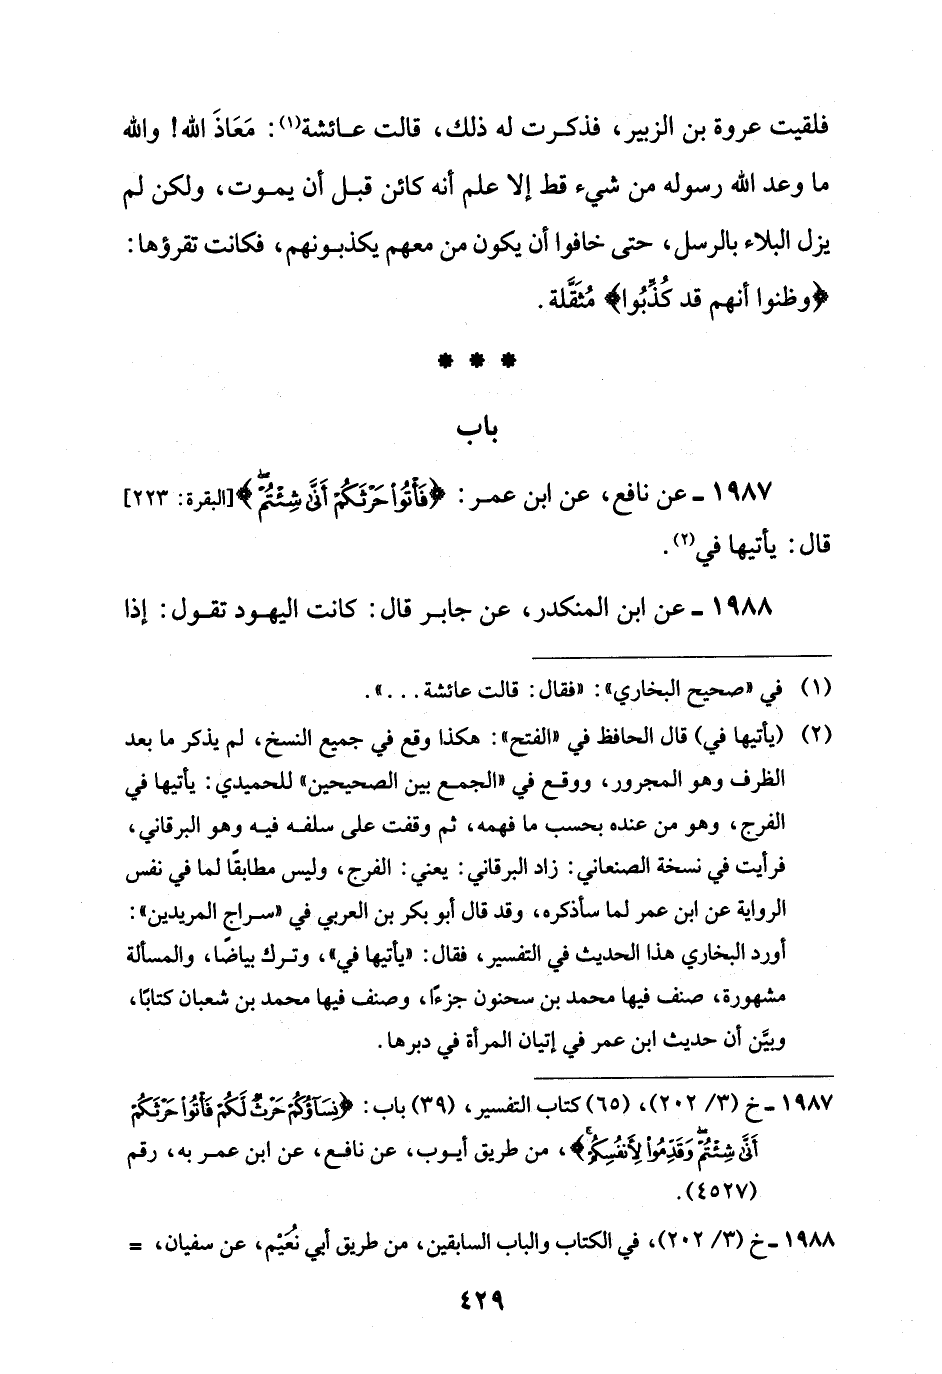 فلقيت عروة بن الزبير، فذكرت له ذلك، قالت عائشة(١): مَعَاذَ الله! والله
ما وعد الله رسوله من شيء قط إلا علم أنه كائن قبل أن يموت، ولكن لم
يزل البلاء بالرسل، حتى خافوا أن يكون من معهم يكذبونهم، فكانت تقرؤها:
﴿وظنوا أنهم قد كُذِّبُوا﴾ مُثَقَّلة.
* * *
باب
١٩٨٧ ـ عن نافع، عن ابن عمر: ﴿فَأْتُوا۟ حَرْثَكُمْ أَنَّىٰ شِئْتُمْ ۖ﴾ [البقرة: ٢٢٣]
قال: يأتيها في(٢).
١٩٨٨ ـ عن ابن المنكدر، عن جابر قال: كانت اليهود تقول: إذا
(١) في «صحيح البخاري»: «فقال: قالت عائشة...».
(٢) (يأتيها في) قال الحافظ في «الفتح»: هكذا وقع في جميع النسخ، لم يذكر ما بعد
الظرف وهو المجرور، ووقع في «الجمع بين الصحيحين» للحميدي: يأتيها في
الفرج، وهو من عنده بحسب ما فهمه، ثم وقفت على سلفه فيه وهو البرقاني،
فرأيت في نسخة الصنعاني: زاد البرقاني: يعني: الفرج، وليس مطابقًا لما في نفس
الرواية عن ابن عمر لما سأذكره، وقد قال أبو بكر بن العربي في «سراج المريدين»:
أورد البخاري هذا الحديث في التفسير، فقال: «يأتيها في»، وترك بياضًا، والمسألة
مشهورة، صنف فيها محمد بن سحنون جزءًا، وصنف فيها محمد بن شعبان كتابًا،
وبيَّن أن حديث ابن عمر في إتيان المرأة في دبرها.
١٩٨٧ ـ خ (٣/ ٢٠٢)، (٦٥) كتاب التفسير، (٣٩) باب: ﴿نِسَآؤُكُمْ حَرْثٌ لَّكُمْ فَأْتُوا۟ حَرْثَكُمْ
أَنَّىٰ شِئْتُمْ ۖ وَقَدِّمُوا۟ لِأَنفُسِكُمْ ۚ﴾، من طريق أيوب، عن نافع، عن ابن عمر به، رقم
(٤٥٢٧).
١٩٨٨ ـ خ (٣/ ٢٠٢)، في الكتاب والباب السابقين، من طريق أبي نُعَيْم، عن سفيان، =
٤٢٩